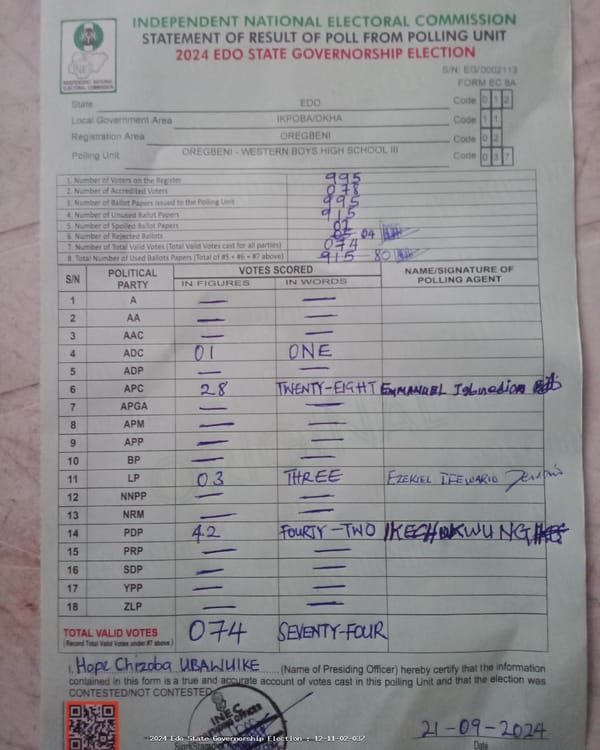 INDEPENDENT NATIONAL ELECTORAL COMMISSION
STATEMENT OF RESULT OF POLL FROM POLLING UNIT
2024 EDO STATE GOVERNORSHIP ELECTION
S/N: EG/0002113
FORM EC 8A
INDEPENDENT NATIONAL ELECTORAL COMMISSION
State EDO Code 0 1 2
Local Government Area IKPOBA/OKHA Code 1 1
Registration Area OREGBENI Code 0 2
Polling Unit OREGBENI - WESTERN BOYS HIGH SCHOOL III Code 0 3 7
1. Number of Voters on the Register 995
2. Number of Accredited Voters 078
3. Number of Ballot Papers Issued to the Polling Unit 995
4. Number of Unused Ballot Papers 915
5. Number of Spoiled Ballot Papers 02
6. Number of Rejected Ballots 04
7. Number of Total Valid Votes (Total Valid Votes cast for all parties) 074
8. Total Number of Used Ballots Papers (Total of #5 + #6 + #7 above) 915 80
S/N POLITICAL PARTY VOTES SCORED NAME/SIGNATURE OF POLLING AGENT
IN FIGURES IN WORDS
1 A — —
2 AA — —
3 AAC — —
4 ADC 01 ONE
5 ADP — —
6 APC 28 TWENTY-EIGHT EMMANUEL
7 APGA — —
8 APM — —
9 APP — —
10 BP — —
11 LP 03 THREE EZEKIEL
12 NNPP — —
13 NRM — —
14 PDP 42 FOURTY-TWO
15 PRP — —
16 SDP — —
17 YPP — —
18 ZLP — —
TOTAL VALID VOTES 074 SEVENTY-FOUR
(Record Total Valid Votes under #7 above)
I, Hope Chizoba UBAWUIKE (Name of Presiding Officer) hereby certify that the information
contained in this form is a true and accurate account of votes cast in this polling Unit and that the election was
CONTESTED/NOT CONTESTED
INEC
21-09-2024
Date
2024 Edo State Governorship Election : 12-11-02-037